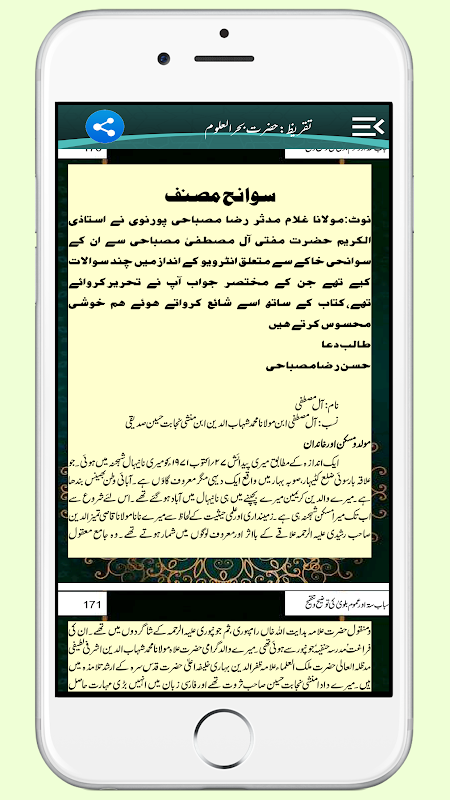 تقریظ: حضرت بحرالعلوم
سوانح مصنف
نوٹ:مولانا غلام مدثر رضا مصباحی پورنوی نے استاذی
الکریم حضرت مفتی آل مصطفیٰ مصباحی سے ان کے
سوانحی خاکے سے متعلق انٹرویو کے انداز میں چند سوالات
کیے تھے جن کے مختصر جواب آپ نے تحریر کروائے
تھے، کتاب کے ساتھ اسے شائع کرواتے ہوئے ہم خوشی
محسوس کرتے ہیں
طالب دعا
حسن رضا مصباحی
نام: آل مصطفی
نسب: آل مصطفی ابن مولانا محمد شہاب الدین ابن منشی نجابت حسین صدیقی
مولد و مسکن اور خاندان
ایک اندازہ کے مطابق میری پیدائش ۲۷/ اکتوبر ۱۹۷۱ء کو میری نانیہال شہجنہ میں ہوئی۔ جو
علاقہ بارسوئی ضلع کٹیہار، صوبہ بہار میں واقع ایک دیہی مگر معروف گاؤں ہے۔ آبائی وطن بھینس بندھا
ہے۔ میرے والدین کریمین میرے بچپنے میں ہی نانیہال میں آباد ہو گئے تھے۔ اس لئے شروع سے
اب تک میرا مسکن شہجنہ ہی ہے۔ زمینداری اور علمی حیثیت کے لحاظ سے میرے نانا مولانا قاضی ثمیر الدین
صاحب رشیدی علیہ الرحمہ علاقے کے بااثر اور معروف لوگوں میں شمار ہوتے تھے۔ وہ جامع معقول
171
اسباب ستہ اور عموم بلویٰ کی توضیح و تنقیح
و منقول حضرت علامہ ہدایت اللہ خاں رامپوری، ثم جونپوری علیہ الرحمہ کے شاگردوں میں تھے۔ ان کی
فراغت مدرسہ حنفیہ جونپور سے ہوئی تھی۔ میرے والد گرامی حضرت علامہ مولانا محمد شہاب الدین اشرفی لطیفی
مدظلہ العالی حضرت ملک العلماء علامہ ظفر الدین بہاری خلیفہ اعلیٰ حضرت قدس سرہ کے ارشد تلامذہ میں
ہیں۔ میرے دادا منشی نجابت حسین صاحب ثروت تھے اور فارسی زبان میں انہیں بڑی مہارت حاصل